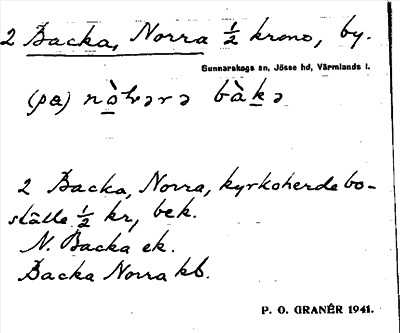 2 Backa, Norra ½ krono, by.
Gunnarskogs sn, Jösse hd, Värmlands l.
(pæ) nòɫvərə bàkə
2 Backa, Norra, kyrkoherdebo-
ställe ½ kr, bek.
N. Backa ek.
Backa Norra kb.
P. O. GRANÉR 1941.